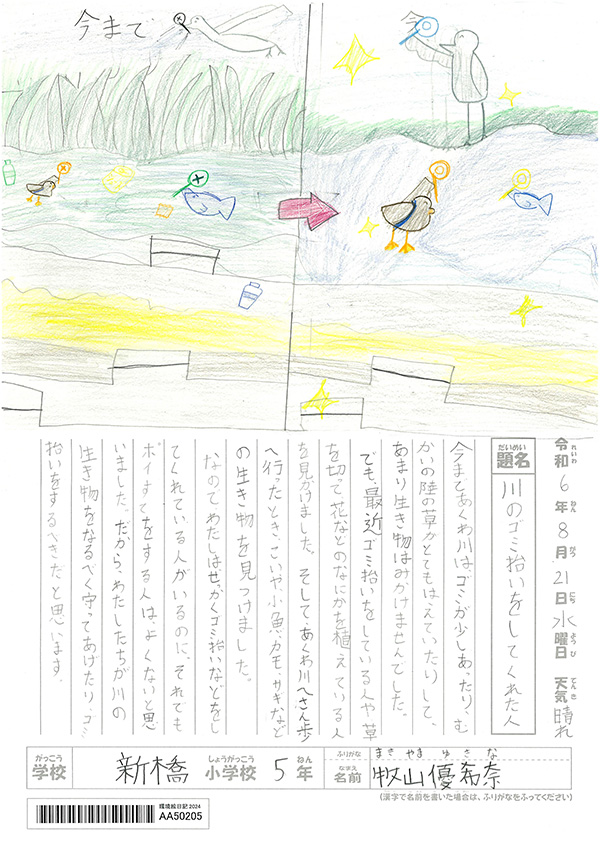 今まで
今
令和6年8月21日水曜日 天気 晴れ
れいわ ねん がつ にち ようび てんき
だいめい
題名
川のゴミ拾いをしてくれた人
今まであくわ川は、ゴミが少しあったり、む
かいの陸の草がとてもはえていたりして、
あまり生き物はみかけませんでした。
でも、最近ゴミ拾いをしている人や草
を切って花などのなにかを植えている人
を見かけました。そして、あくわ川へさん歩
へ行ったとき、こいや小魚、カモ、サギなど
の生き物を見つけました。
なのでわたしはせっかくゴミ拾いなどをし
てくれている人がいるのに、それでも
ポイすてをする人は、よくないと思
いました。だから、わたしたちが川の
生き物をなるべく守ってあげたり、ゴミ
拾いをするべきだと思います。
がっこう しょうがっこう ねん ふりがな まきやま ゆきな
学校 新橋 小学校 5年 なまえ 名前 牧山優希奈
(漢字で名前を書いた場合は、ふりがなをふってください)
環境絵日記2024
AA50205